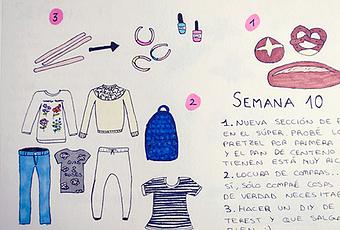 3
1
2
SEMANA 10
1. NUEVA SECCIÓN DE
EN EL SÚPER. PROBÉ LO
PRETZEL POR PRIMERA
Y EL PAN DE CENTENO
TIENEN ESTÁ MUY RIC
2. LOCURA DE COMPRAS...
SÍ, SÓLO COMPRÉ COSAS
DE VERDAD NECESITA
3. HACER UN DIY DE
TEREST Y QUE SALGA
BIEN